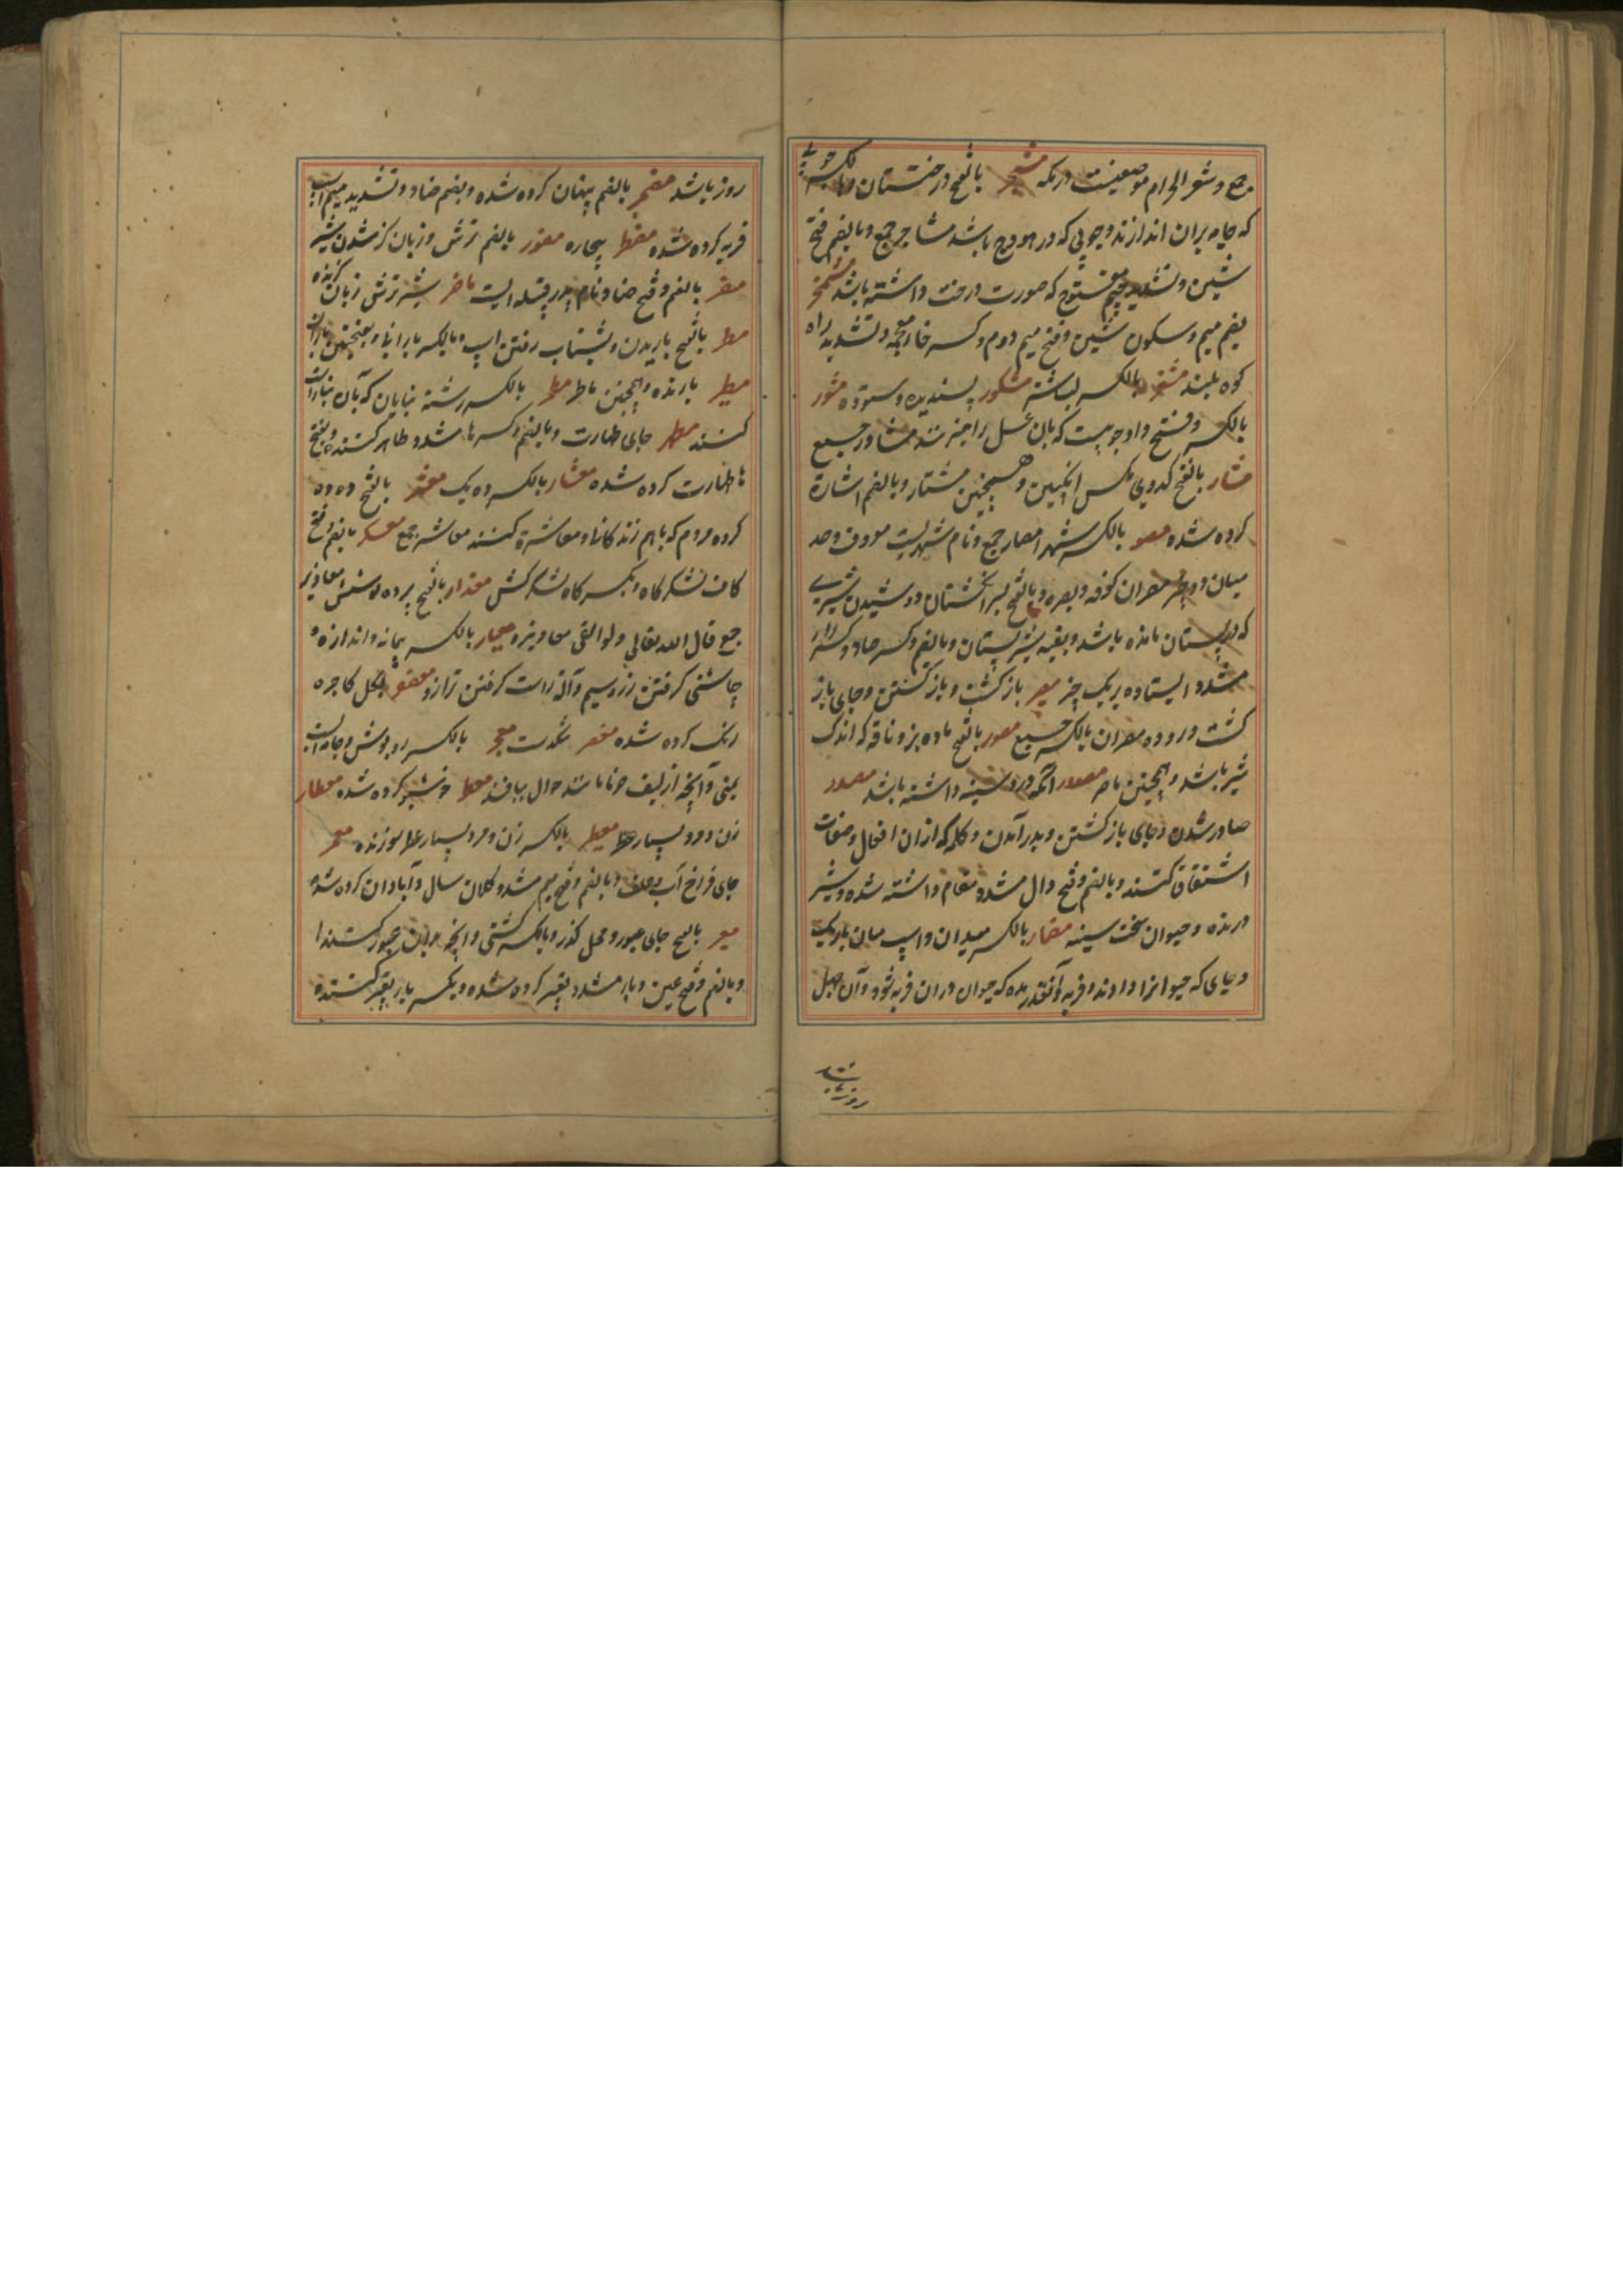 جمع و مشعر الحرام موضعیست در مکه مشجر بالفتح درختستان و بالکسر چوبی
که جامه بران اندازند و چوبی که در هودج باشد مشاجر جمع و بالضم و فتح
شین و تشدید جیم مفتوح که صورت درخت داشته باشد مشمخر
بضم میم و سکون شین و فتح میم دوم و کسر خاء معجمه و تشدید راء
کوه بلند مشفر بالکسر لب شتر مشکور پسندیده و ستوده مشور
بالکسر و فتح واو چوبیست که بان عسل را چینند مشاور جمع
مشار بالفتح کدوی مکس انکبین و همچنین مشتار و بالضم اشارة
کرده شده مصر بالکسر شهر امصار جمع و نام شهریست معروف و حد
میان دو چیز مصران کوفه و بصره و بالفتح بسر انکشتان دوشیدن شیری
که در پستان مانده باشد و بقیه شیر پستان و بالضم و کسر صاد و
مشدد ایستاده بر یک چیز مصیر بازکشت و بازکشتن و جای باز
کشت و روده مصران بالکسر جمع مصور بالفتح ماده بز و ناقه که اندک
شیر باشد و همچنین ماصر مصدور آنکه درد سینه داشته باشد مصدر
صادر شدن و جای بازکشتن و بدر آمدن و کلمه که ازان افعال و صفات
اشتقاق کنند و بالضم و فتح دال مشدد مقام داشته شده و شیر
درنده و حیوان سخت سینه مضمار بالکسر میدان و اسپ میان باریک
و جای که حیوانرا دران فربه و آنقدر مده که حیوان دران فربه شود و آن چهل
روز باشد
روز باشد مضمر بالضم پنهان کرده شده و بضم ضاد و تشدید میم اسپ
فربه کرده شده مضطر بیچاره مضور بالضم ترش و زبان کز شدن شیر
مضر بالضم و فتح ضاد نام پدر قبیله ایست ماضر شیر ترش زبان کزنده
مطر بالفتح باریدن و بشتاب رفتن اسپ و بالکسر بارانها و بفتحتین باران
مطیر بارنده و همچنین ماطر مطمر بالکسر رشته بنایان که بآن بنا راست
کنند مطهر جای طهارت و بالضم و کسر ها مشدد طاهر کننده و بفتح
ها طهارت کرده شده معشار بالکسر ده یک معشر بالفتح ده ده
کرده مردم که باهم زندکانی و معاشرة کنند معاشر جمع معسکر بالضم و فتح
کاف لشکرکاه و بکسر کاف لشکرکش معذار بالفتح پرده پوشش معاذیر
جمع قال الله تعالی و لو القی معاذیره معیار بالکسر پیمانه و اندازه و
چاشنی کرفتن زر و سیم و آلة راست کرفتن ترازو معصفر بکل کاجره
رنک کرده شده معسر تنکدست معجر بالکسر روپوش و جامه ایست
یمنی و آنچه از لیف خرما مانند جوال ببافند معطر خوشبو کرده شده معطار
زن و مرد بسیار عطر معطیر بالکسر زن و مرد بسیار عطر سوزنده معمر
جای فراخ آب و علف و بالضم و فتح میم مشدد کلان سال و آبادان کرده شده
معبر بالفتح جای عبور و محل کذر و بالکسر کشتی و آنچه بران عبور کنند
و بالضم و فتح عین و باء مشدد تعبیر کرده شده و بکسر با تعبیر کننده